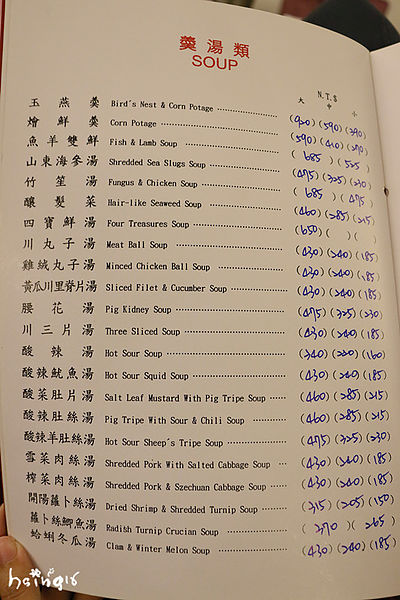 羹湯類
SOUP
N.T.$
大 中 小
玉燕羹 Bird's Nest & Corn Potage (920) (590) (390)
燴鮮羹 Corn Potage (590) (410) (270)
魚羊雙鮮 Fish & Lamb Soup (685) (525)
山東海參湯 Shredded Sea Slugs Soup (475) (325) (230)
竹笙湯 Fungus & Chicken Soup (685) (475)
釀髮菜 Hair-like Seaweed Soup (460) (285) (215)
四寶鮮湯 Four Treasures Soup (650) ( ) ( )
川丸子湯 Meat Ball Soup (430) (240) (185)
雞絨丸子湯 Minced Chicken Ball Soup (430) (240) (185)
黃瓜川里脊片湯 Sliced Filet & Cucumber Soup (430) (240) (185)
腰花湯 Pig Kidney Soup (475) (325) (230)
川三片湯 Three Sliced Soup (430) (240) (185)
酸辣湯 Hot Sour Soup (340) (220) (160)
酸辣魷魚湯 Hot Sour Squid Soup (430) (240) (185)
酸菜肚片湯 Salt Leaf Mustard With Pig Tripe Soup (460) (285) (215)
酸辣肚絲湯 Pig Tripe With Sour & Chili Soup (460) (285) (215)
酸辣羊肚絲湯 Hot Sour Sheep's Tripe Soup (475) (325) (230)
雪菜肉絲湯 Shredded Pork With Salted Cabbage Soup (430) (240) (185)
榨菜肉絲湯 Shredded Pork & Szechuan Cabbage Soup (430) (240) (185)
開陽蘿卜絲湯 Dried Shrimp & Shredded Turnip Soup (315) (205) (150)
蘿卜絲鯽魚湯 Radish Turnip Crucian Soup (370) (265)
蛤蜊冬瓜湯 Clam & Winter Melon Soup (430) (240) (185)